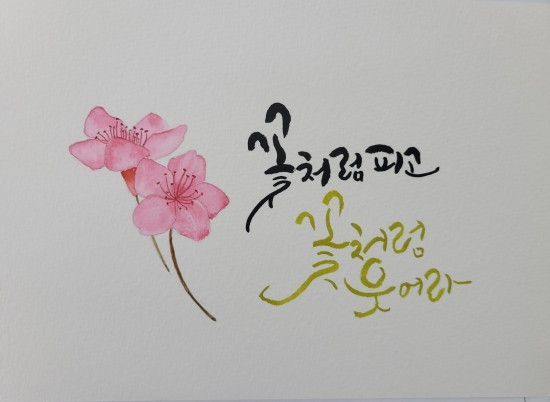 꽃처럼 피고
꽃처럼
웃어라